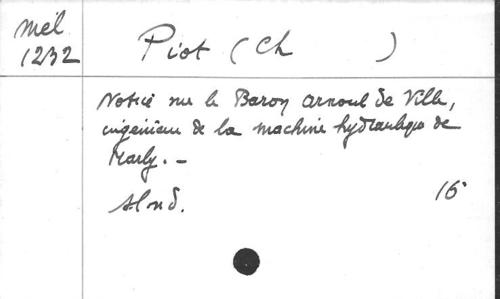 Mél
1232
Piot (Ch )
Notice sur le Baron Arnoul de Ville,
ingénieur de la machine hydraulique de
Marly. –
sl nd.
16°